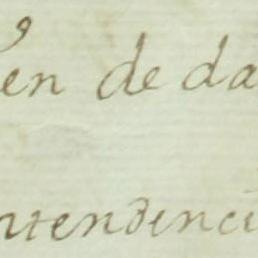 en de da
ntendenci